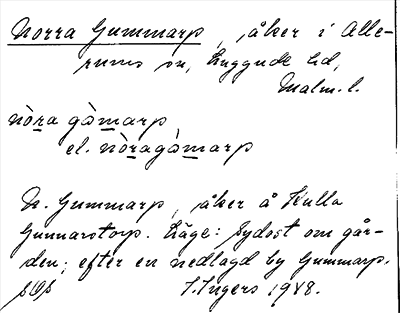 Norra Gummarp, åker i Alle-
rums sn, Luggude hd,
Malm. l.
nòra gòmarp
el. nòragòmarp
N. Gummarp, åker å Kulla
Gunnarstorp. Läge: sydost om går-
den; efter en nedlagd by Gummarp.
I. Ingers 1948.